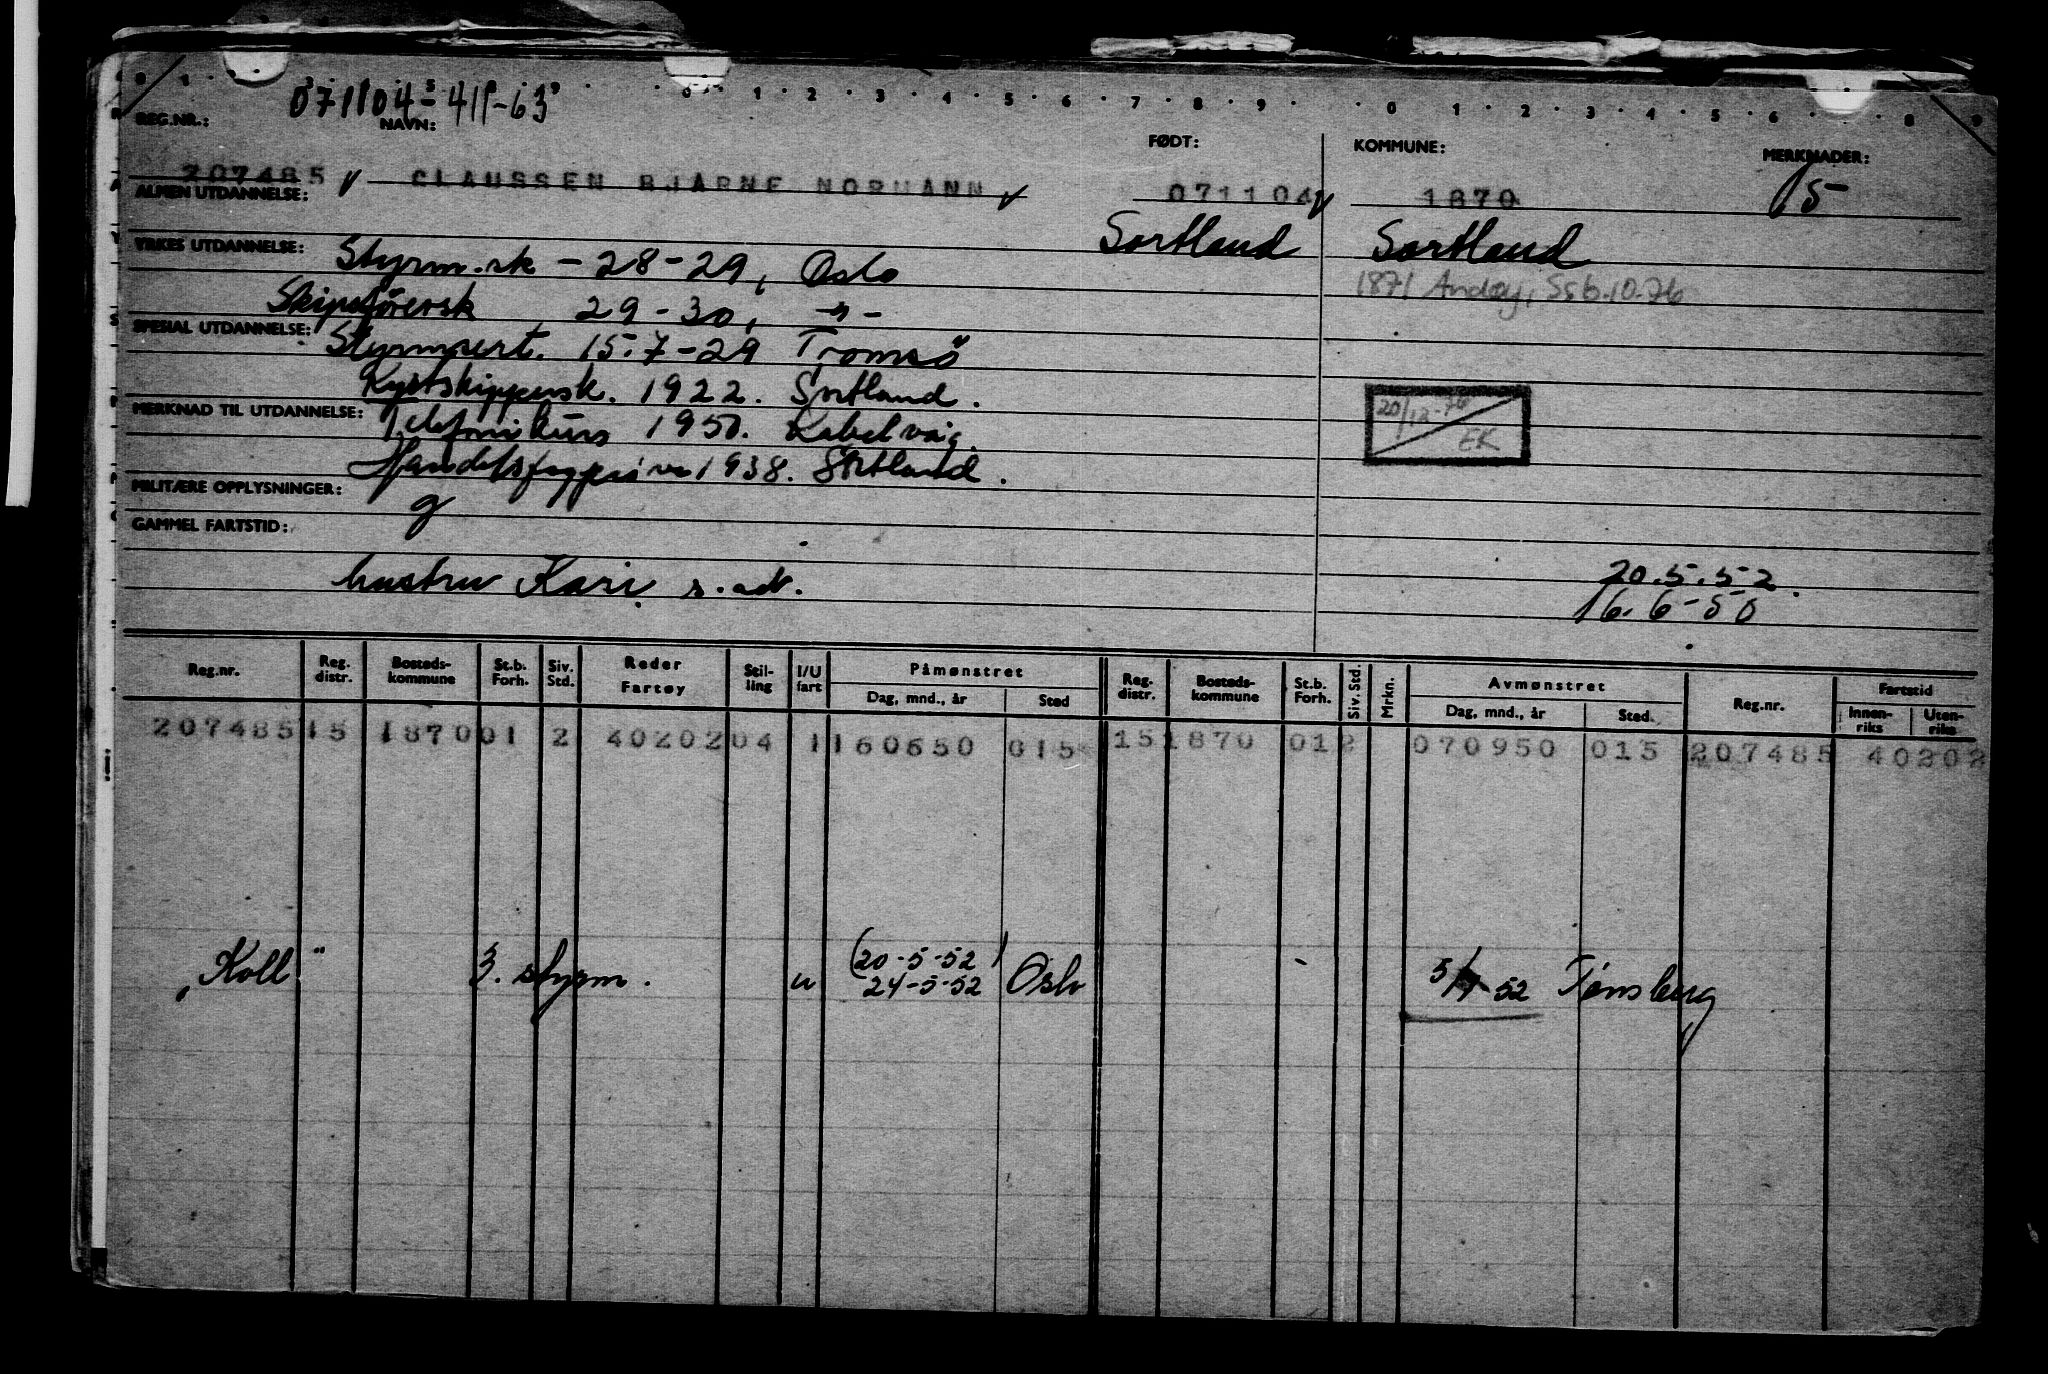 071104-411-63
REG.NR.: NAVN: FØDT: KOMMUNE: MERKNADER:
207485 CLAUSSEN BJARNE NORMANN 071104 1870 15
ALMEN UTDANNELSE:
Sortland Sortland
YRKES UTDANNELSE: Styrm.sk - 28-29, Oslo
1871 Andøy, Ssb. 10.76
Skipsförersk 29-30, -"-
SPESIAL UTDANNELSE: Styrmsert. 15.7-29 Tromsö
Kystskippersk. 1922. Sortland.
20/12-76 EK
MERKNAD TIL UTDANNELSE: Telefonikurs 1950. Kabelvåg.
Handelsfagprøve 1938. Sortland.
MILITÆRE OPPLYSNINGER: g
GAMMEL FARTSTID:
hustru Kari s. ad.
20.5.52.
16.6-50
Reg.nr. Reg. distr. Bosteds-kommune St.b. Forh. Siv. Std. Reder Fartøy Stil-ling I/U fart Påmønstret Dag, mnd., år Sted Reg. distr. Bosteds-kommune St.b. Forh. Siv. Std. Mrkn. Avmønstret Dag, mnd., år Sted. Reg.nr. Fartstid Innen-riks Uten-riks
207485 15 1870 01 2 40202 04 1 160650 015 15 1870 01 2 070950 015 207485 40202
"Koll" 3. styrm. u (20-5-52) 24-5-52 Oslo 5/7 52 Tønsberg